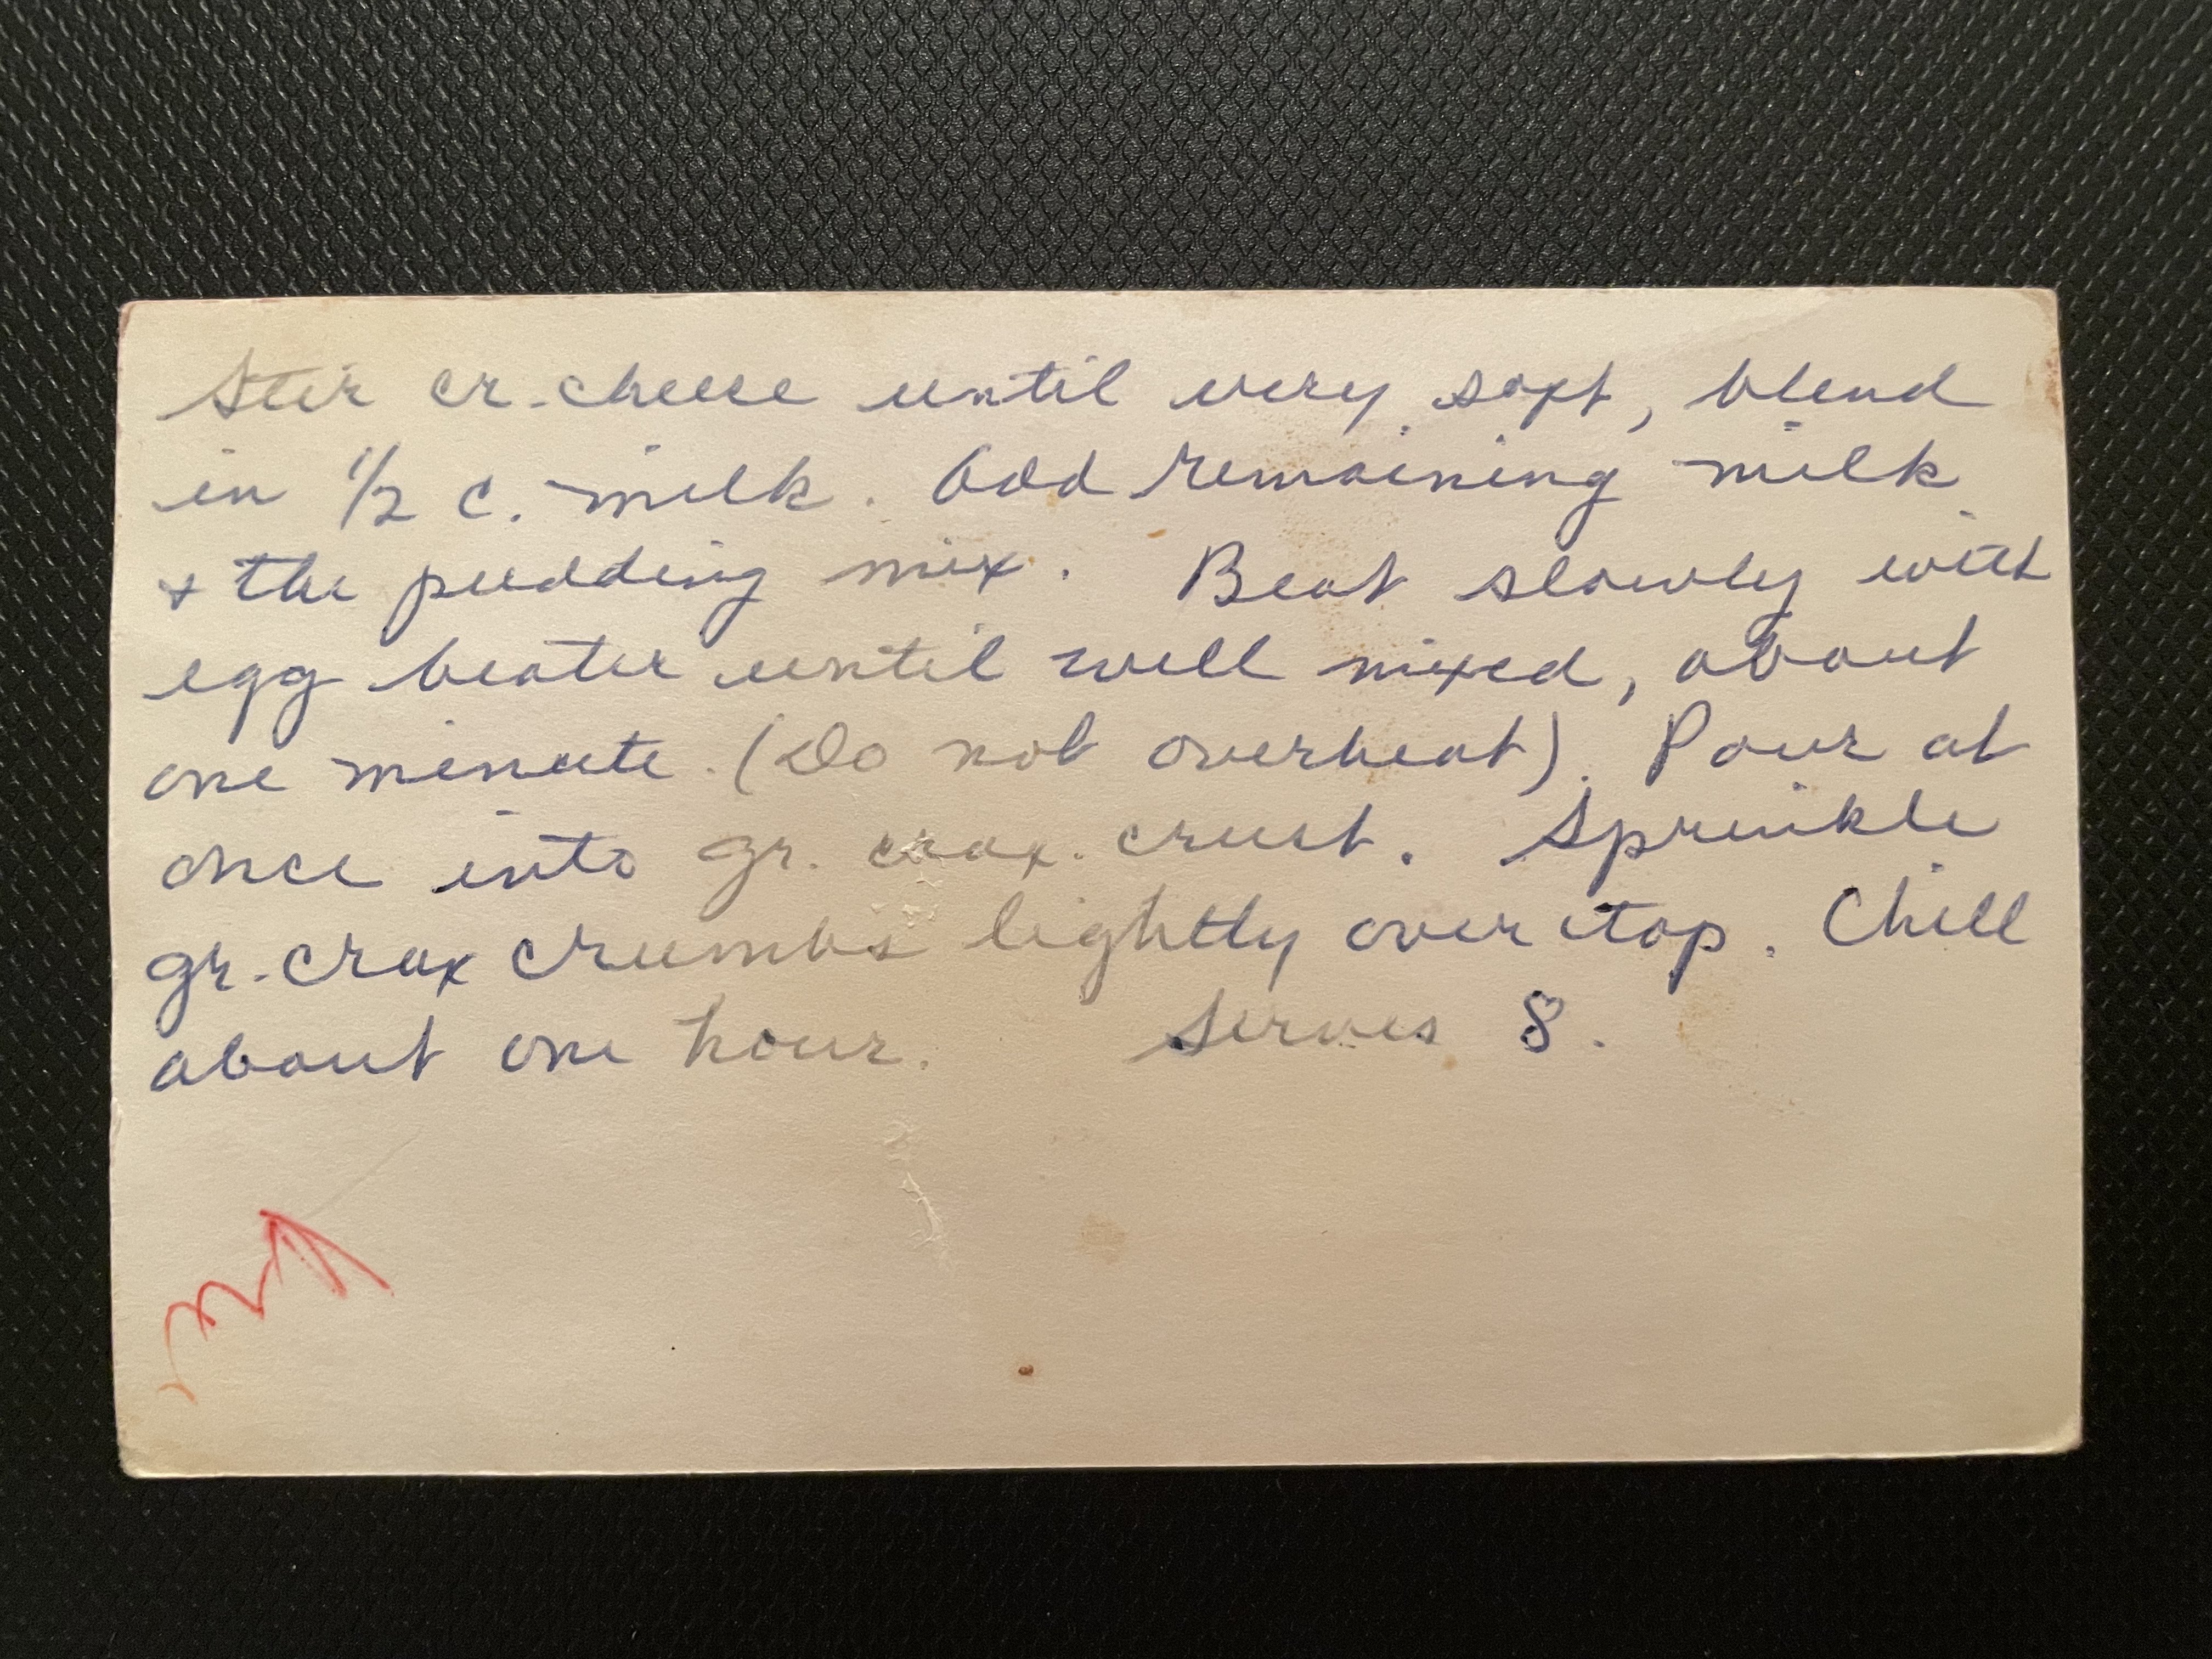 Stir cr. cheese until very soft, blend
in 1/2 c. milk. Add remaining milk
+ the pudding mix. Beat slowly with
egg beater until well mixed, about
one minute. (Do not overbeat). Pour at
once into gr. crax. crust. Sprinkle
gr. crax crumbs lightly over top. Chill
about one hour. Serves 8.